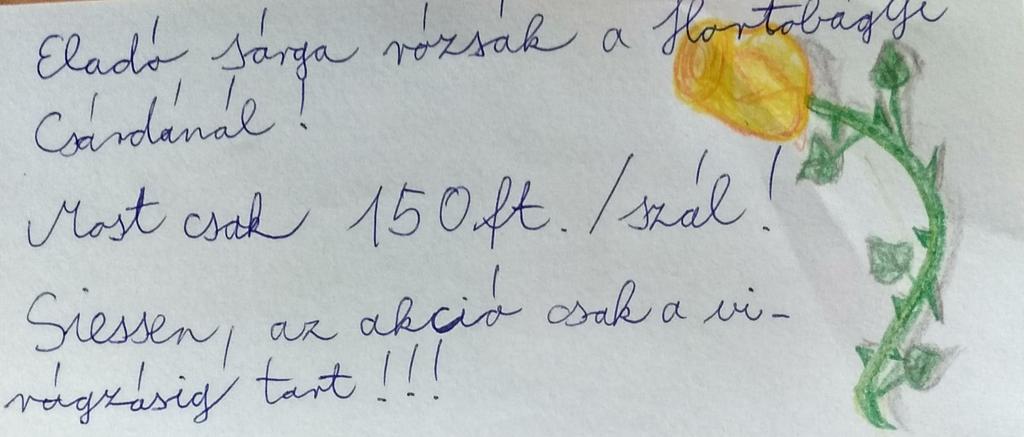 Eladó sárga rózsák a Hortobágyi
Csárdánál!
Most csak 150ft./szál!
Siessen, az akció csak a vi-
rágzásig tart!!!